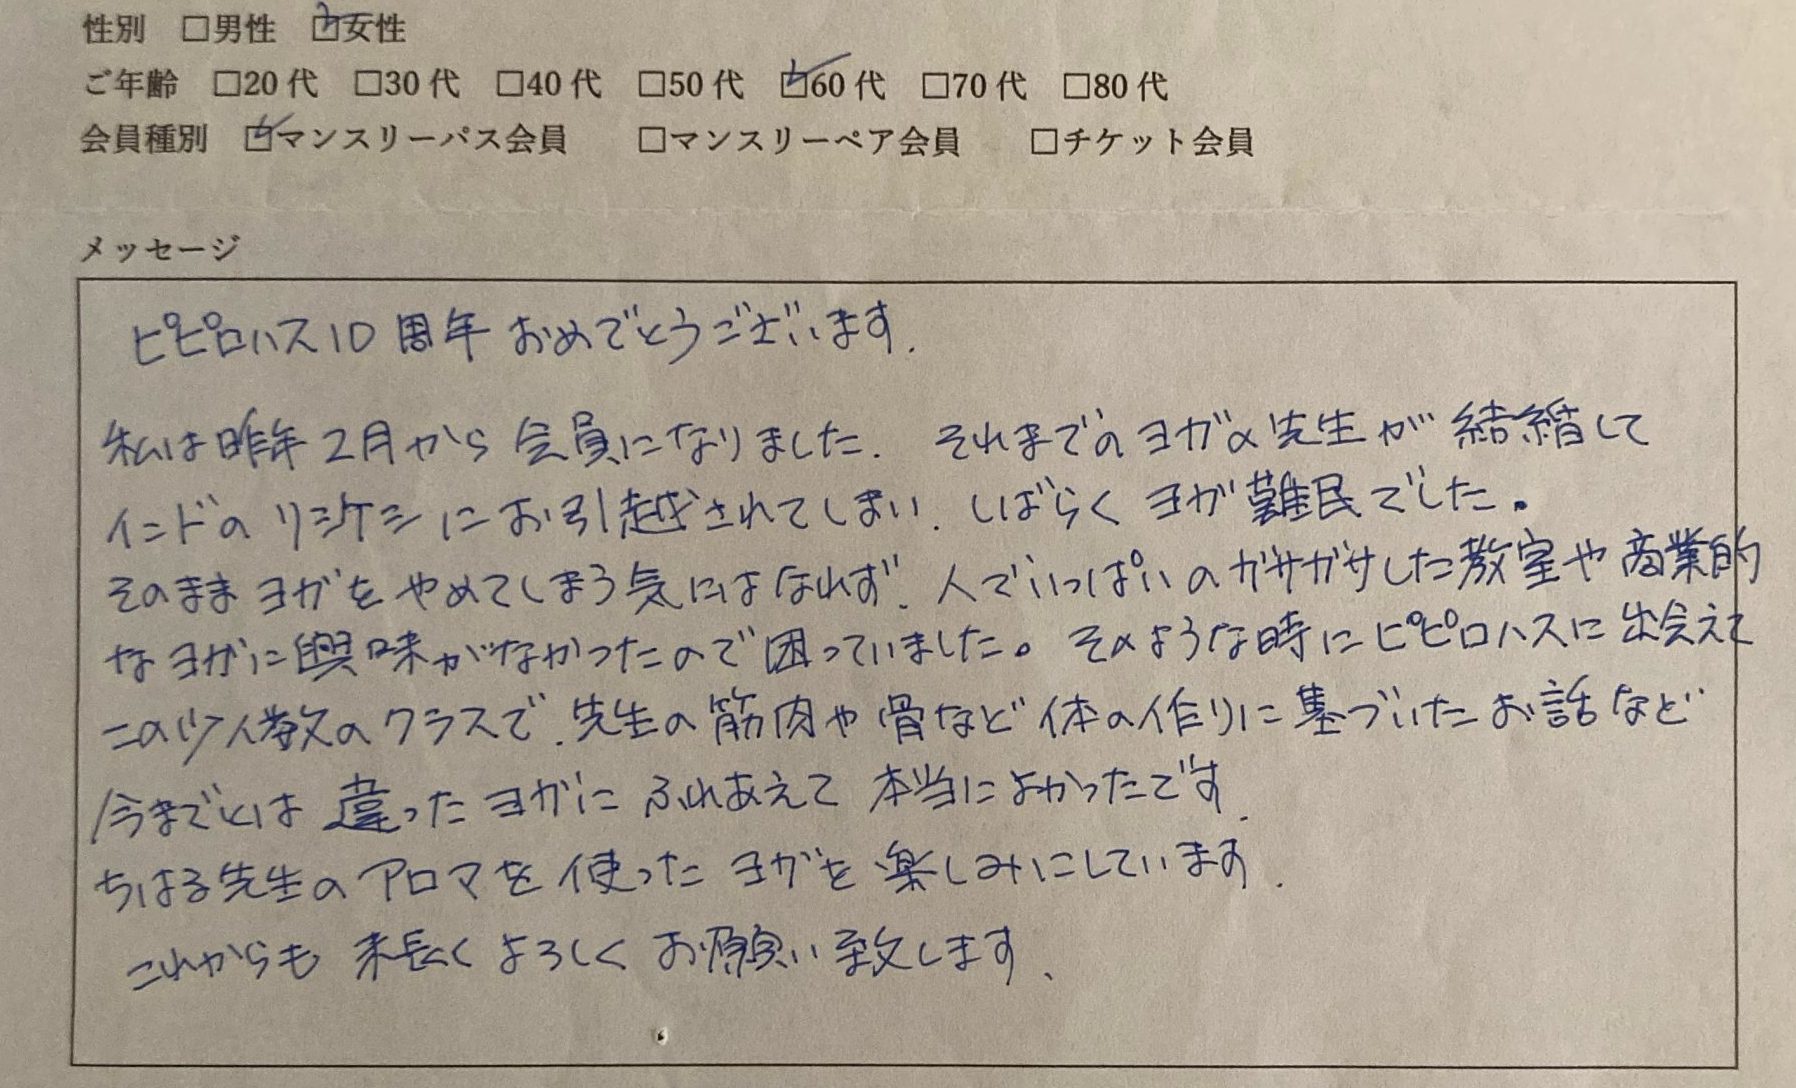 性別 □男性 ☑女性
ご年齢 □20代 □30代 □40代 □50代 ☑60代 □70代 □80代
会員種別 ☑マンスリーパス会員 □マンスリーペア会員 □チケット会員
メッセージ
ピピロハス10周年おめでとうございます.
私は昨年2月から会員になりました. それまでのヨガの先生が結婚して
インドのリシケシにお引越されてしまい. しばらくヨガ難民でした。
そのままヨガをやめてしまう気にはなれず. 人でいっぱいのガサガサした教室や商業的
なヨガに興味がなかったので困っていました。そのような時にピピロハスに出会えて
この少人数のクラスで.先生の筋肉や骨など体の作りに基づいたお話など
今までとは違ったヨガにふれあえて本当によかったです.
ちはる先生のアロマを使ったヨガを楽しみにしています.
これからも末長くよろしくお願い致します.